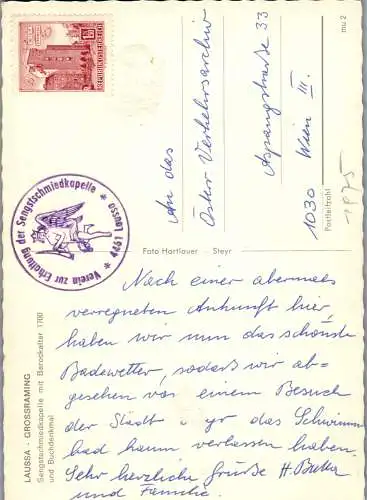 LAUSSA - GROSSRAMING
Sengstschmiedkapelle mit Barockaltar 1780
und Buchdenkmal
REPUBLIK ÖSTERREICH
Verein zur Erhaltung der Sengstschmiedkapelle
4461 Laussa
Foto Hartlauer - Steyr
mu 2
An das
Österr Verkehrsarchiv
Aspangstraße 33
1030 Wien III.
Postleitzahl
1975
Nach einer abermals
verregneten Ankunft hier,
haben wir nun das schönste
Badewetter, sodass wir ab-
gesehen von einem Besuch
der Stadt das Schwimm
bad kaum verlassen haben.
Sehr herzliche Grüße H.
und Familie